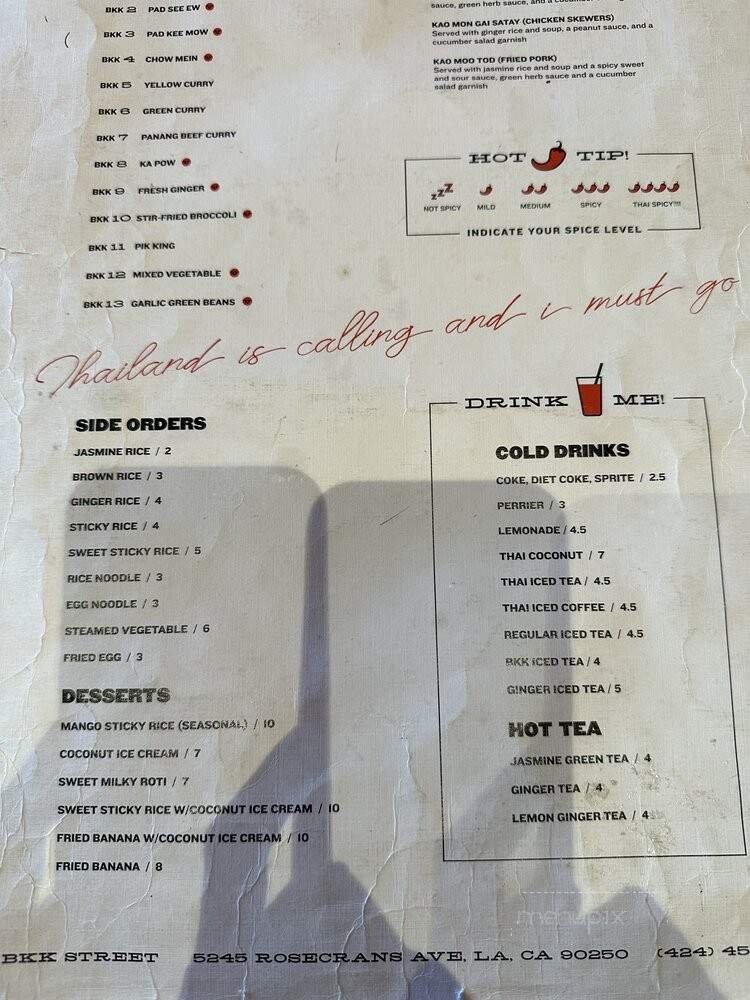 BKK 2 PAD SEE EW
BKK 3 PAD KEE MOW
BKK 4 CHOW MEIN
BKK 5 YELLOW CURRY
BKK 6 GREEN CURRY
BKK 7 PANANG BEEF CURRY
BKK 8 KA POW
BKK 9 FRESH GINGER
BKK 10 STIR-FRIED BROCCOLI
BKK 11 PIK KING
BKK 12 MIXED VEGETABLE
BKK 13 GARLIC GREEN BEANS
sauce, green herb sauce, and a
KAO MON GAI SATAY (CHICKEN SKEWERS)
Served with ginger rice and soup, a peanut sauce, and a
cucumber salad garnish
KAO MOO TOD (FRIED PORK)
Served with jasmine rice and soup and a spicy sweet
and sour sauce, green herb sauce and a cucumber
salad garnish
HOT TIP!
zzZ
NOT SPICY MILD MEDIUM SPICY THAI SPICY!!!!
INDICATE YOUR SPICE LEVEL
Thailand is calling and i must go
SIDE ORDERS
JASMINE RICE / 2
BROWN RICE / 3
GINGER RICE / 4
STICKY RICE / 4
SWEET STICKY RICE / 5
RICE NOODLE / 3
EGG NOODLE / 3
STEAMED VEGETABLE / 6
FRIED EGG / 3
DESSERTS
MANGO STICKY RICE (SEASONAL) / 10
COCONUT ICE CREAM / 7
SWEET MILKY ROTI / 7
SWEET STICKY RICE W/COCONUT ICE CREAM / 10
FRIED BANANA W/COCONUT ICE CREAM / 10
FRIED BANANA / 8
DRINK ME!
COLD DRINKS
COKE, DIET COKE, SPRITE / 2.5
PERRIER / 3
LEMONADE / 4.5
THAI COCONUT / 7
THAI ICED TEA / 4.5
THAI ICED COFFEE / 4.5
REGULAR ICED TEA / 4.5
BKK ICED TEA / 4
GINGER ICED TEA / 5
HOT TEA
JASMINE GREEN TEA / 4
GINGER TEA / 4
LEMON GINGER TEA / 4
menupix
BKK STREET 5245 ROSECRANS AVE, LA, CA 90250 (424) 45